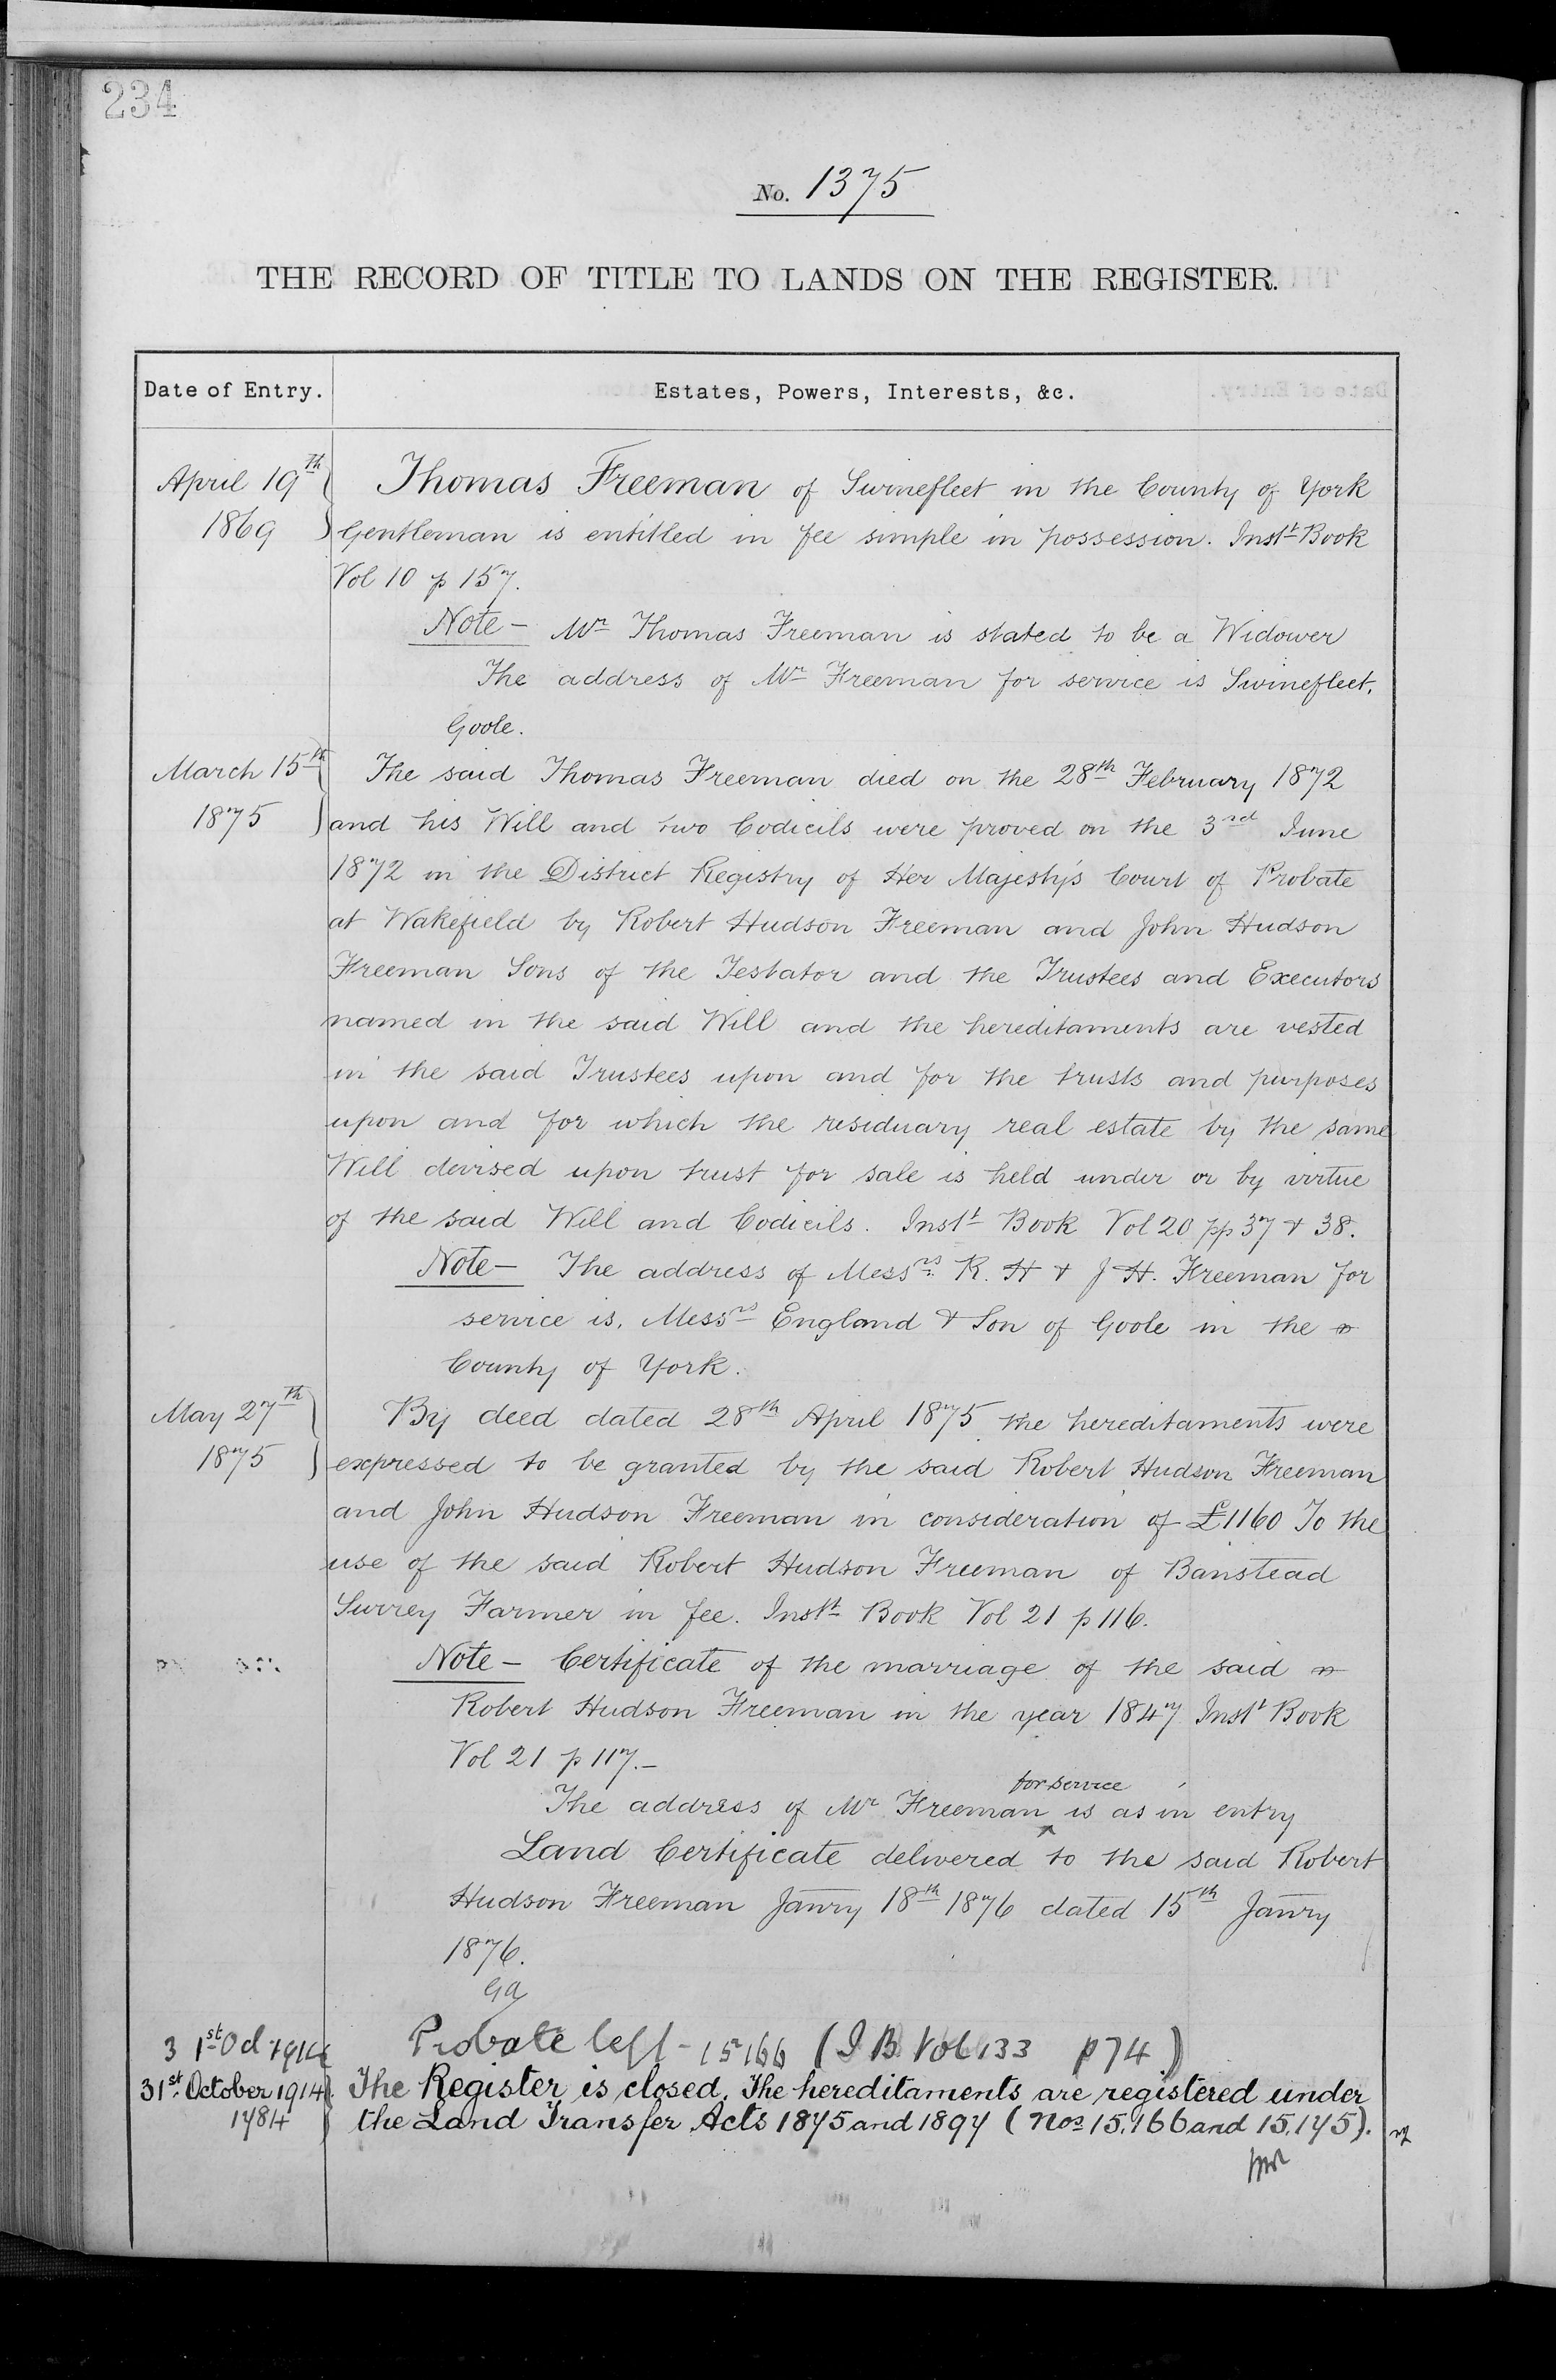 234
No. 1375
THE RECORD OF TITLE TO LANDS ON THE REGISTER.
Date of Entry.
Estates, Powers, Interests, &c.
April 19th
1869
Thomas Freeman of Swinefleet in the County of York
Gentleman is entitled in fee simple in possession. Instt Book
Vol 10 p 157.
Note - Mr Thomas Freeman is stated to be a Widower
The address of Mr Freeman for service is Swinefleet,
Goole.
March 15th
1875
The said Thomas Freeman died on the 28th February 1872
and his Will and two Codicils were proved on the 3rd June
1872 in the District Registry of Her Majesty's Court of Probate
at Wakefield by Robert Hudson Freeman and John Hudson
Freeman Sons of the Testator and the Trustees and Executors
named in the said Will and the hereditaments are vested
in the said Trustees upon and for the trusts and purposes
upon and for which the residuary real estate by the same
Will devised upon trust for sale is held under or by virtue
of the said Will and Codicils. Instt Book Vol 20 pp 37 & 38.
Note - The address of Messrs. R. H & J H. Freeman for
service is, Messrs England & Son of Goole in the
County of York.
May 27th
1875
By deed dated 28th April 1875 the hereditaments were
expressed to be granted by the said Robert Hudson Freeman
and John Hudson Freeman in consideration of £1160 To the
use of the said Robert Hudson Freeman of Banstead
Surrey Farmer in fee. Instt Book Vol 21 p 116.
Note - Certificate of the marriage of the said
Robert Hudson Freeman in the year 1847 Instt Book
Vol 21 p 117. -
for service
The address of Mr Freeman ^ is as in entry
Land Certificate delivered to the said Robert
Hudson Freeman Janry 18th 1876 dated 15th Janry
1876.
31st Oct 1914 Probate left - 15166 (I B. Vol 133 p 74)
31st October 1914
1784
The Register is closed. The hereditaments are registered under
the Land Transfer Acts 1875 and 1897 (Nos 15,166 and 15,175).